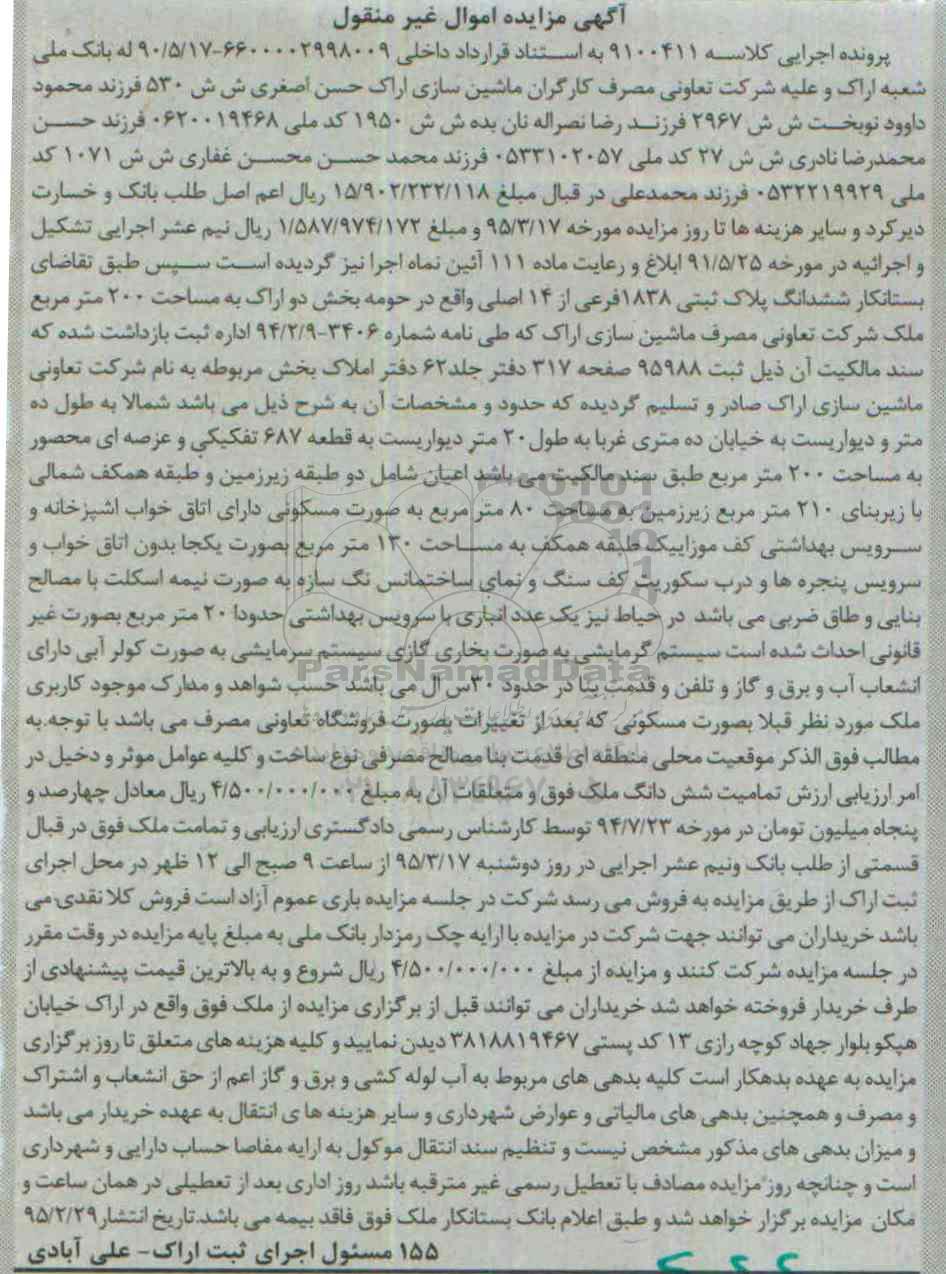 آگهی مزایده اموال غیر منقول
پرونده اجرایی کلاسه ۹۱۰۰۴۱۱ به استناد قرارداد داخلی ۶۶۰۰۰۰۲۹۹۸۰۰۹-۹۰/۵/۱۷ له بانک ملی
شعبه اراک و علیه شرکت تعاونی مصرف کارگران ماشین سازی اراک حسن اصغری ش ش ۵۳۰ فرزند محمود
داوود نوبخت ش ش ۲۹۶۷ فرزند رضا نصراله نان بده ش ش ۱۹۵۰ کد ملی ۰۶۲۰۰۱۹۴۶۸ فرزند حسن
محمدرضا نادری ش ش ۲۷ کد ملی ۰۵۳۳۱۰۲۰۵۷ فرزند محمد حسن محسن غفاری ش ش ۱۰۷۱ کد
ملی ۰۵۳۲۲۱۹۹۲۹ فرزند محمدعلی در قبال مبلغ ۱۵/۹۰۲/۲۳۲/۱۱۸ ریال اعم اصل طلب بانک و خسارت
دیرکرد و سایر هزینه ها تا روز مزایده مورخه ۹۵/۳/۱۷ و مبلغ ۱/۵۸۷/۹۷۴/۱۷۲ ریال نیم عشر اجرایی تشکیل
و اجرائیه در مورخه ۹۱/۵/۲۵ ابلاغ و رعایت ماده ۱۱۱ آئین نماه اجرا نیز گردیده است سپس طبق تقاضای
بستانکار ششدانگ پلاک ثبتی ۱۸۳۸فرعی از ۱۴ اصلی واقع در حومه بخش دو اراک به مساحت ۲۰۰ متر مربع
ملک شرکت تعاونی مصرف ماشین سازی اراک که طی نامه شماره ۳۴۰۶-۹۴/۲/۹ اداره ثبت بازداشت شده که
سند مالکیت آن ذیل ثبت ۹۵۹۸۸ صفحه ۳۱۷ دفتر جلد۶۲ دفتر املاک بخش مربوطه به نام شرکت تعاونی
ماشین سازی اراک صادر و تسلیم گردیده که حدود و مشخصات آن به شرح ذیل می باشد شمالا به طول ده
متر و دیواریست به خیابان ده متری غربا به طول۲۰ متر دیواریست به قطعه ۶۸۷ تفکیکی و عرصه ای محصور
به مساحت ۲۰۰ متر مربع طبق سند مالکیت می باشد اعیان شامل دو طبقه زیرزمین و طبقه همکف شمالی
با زیربنای ۲۱۰ متر مربع زیرزمین به مساحت ۸۰ متر مربع به صورت مسکونی دارای اتاق خواب اشپزخانه و
سرویس بهداشتی کف موزاییک طبقه همکف به مساحت ۱۳۰ متر مربع بصورت یکجا بدون اتاق خواب و
سرویس پنجره ها و درب سکوریت کف سنگ و نمای ساختمانس نگ سازه به صورت نیمه اسکلت با مصالح
بنایی و طاق ضربی می باشد در حیاط نیز یک عدد انباری با سرویس بهداشتی حدودا ۲۰ متر مربع بصورت غیر
قانونی احداث شده است سیستم گرمایشی به صورت بخاری گازی سیستم سرمایشی به صورت کولر آبی دارای
انشعاب آب و برق و گاز و تلفن و قدمت بنا در حدود ۳۰س ال می باشد حسب شواهد و مدارک موجود کاربری
ملک مورد نظر قبلا بصورت مسکونی که بعد از تغییرات بصورت فروشگاه تعاونی مصرف می باشد با توجه به
مطالب فوق الذکر موقعیت محلی منطقه ای قدمت بنا مصالح مصرفی نوع ساخت و کلیه عوامل موثر و دخیل در
امر ارزیابی ارزش تمامیت شش دانگ ملک فوق و متعلقات آن به مبلغ ۴/۵۰۰/۰۰۰/۰۰۰ ریال معادل چهارصد و
پنجاه میلیون تومان در مورخه ۹۴/۷/۲۳ توسط کارشناس رسمی دادگستری ارزیابی و تمامت ملک فوق در قبال
قسمتی از طلب بانک ونیم عشر اجرایی در روز دوشنبه ۹۵/۳/۱۷ از ساعت ۹ صبح الی ۱۲ ظهر در محل اجرای
ثبت اراک از طریق مزایده به فروش می رسد شرکت در جلسه مزایده باری عموم آزاد است فروش کلا نقدی می
باشد خریداران می توانند جهت شرکت در مزایده با ارایه چک رمزدار بانک ملی به مبلغ پایه مزایده در وقت مقرر
در جلسه مزایده شرکت کنند و مزایده از مبلغ ۴/۵۰۰/۰۰۰/۰۰۰ ریال شروع و به بالاترین قیمت پیشنهادی از
طرف خریدار فروخته خواهد شد خریداران می توانند قبل از برگزاری مزایده از ملک فوق واقع در اراک خیابان
هپکو بلوار جهاد کوچه رازی ۱۳ کد پستی ۳۸۱۸۸۱۹۴۶۷ دیدن نمایید و کلیه هزینه های متعلق تا روز برگزاری
مزایده به عهده بدهکار است کلیه بدهی های مربوط به آب لوله کشی و برق و گاز اعم از حق انشعاب و اشتراک
و مصرف و همچنین بدهی های مالیاتی و عوارض شهرداری و سایر هزینه ها ی انتقال به عهده خریدار می باشد
و میزان بدهی های مذکور مشخص نیست و تنظیم سند انتقال موکول به ارایه مفاصا حساب دارایی و شهرداری
است و چنانچه روز مزایده مصادف با تعطیل رسمی غیر مترقبه باشد روز اداری بعد از تعطیلی در همان ساعت و
مکان مزایده برگزار خواهد شد و طبق اعلام بانک بستانکار ملک فوق فاقد بیمه می باشد.تاریخ انتشار۹۵/۲/۲۹
۱۵۵ مسئول اجرای ثبت اراک- علی آبادی
ParsNamadData